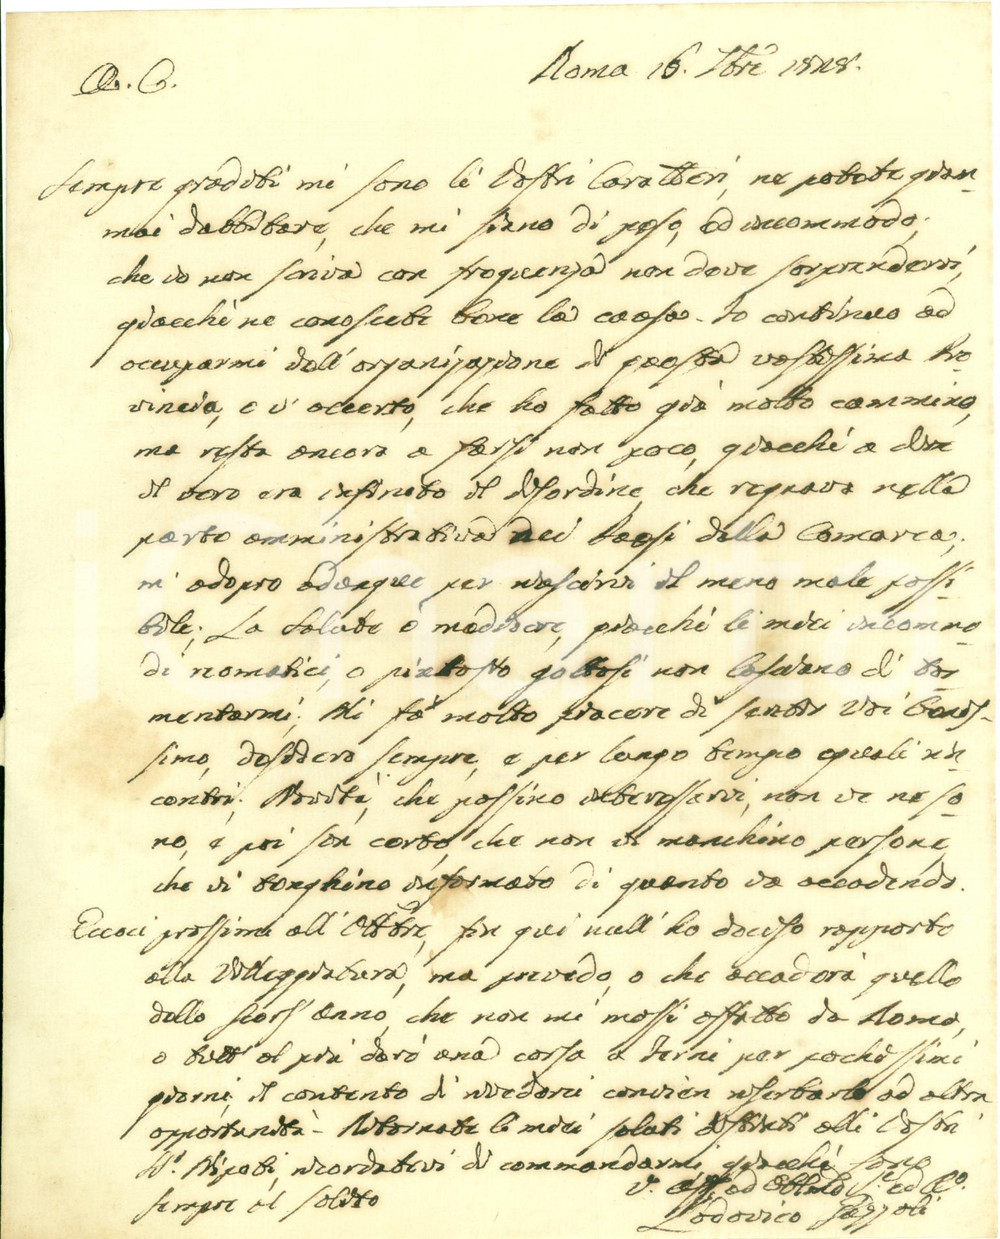 A. C.
Roma 16. 7bre 1828.
Sempre graditi mi sono li Vostri Caratteri, ne potete giam-
mai dubbitare, che mi siano di peso, ed incommodo;
che io non scriva con frequenza non deve sorprendervi,
giacchè ne conoscete bene la causa. Io continuo ad
occuparmi dell'organizzazione di questa vastissima Pro
vincia, e v'accerto, che ho fatto già molto cammino,
ma resta ancora a farsi non poco, giacchè a dire
il vero era infinito il disordine, che regnava nella
parte amministrativa dei Paesi della Comarca;
m'adopro adunque per riescirvi il meno male possi-
bile. La salute è mediocre, giacchè li miei incommo
di reomatici, o piuttosto gottosi non lasciano di tor
mentarmi; Mi fà molto piacere di sentir Voi benis-
simo, desidero sempre, e per lungo tempo eguali ris
contri. Novità, che possino interessarvi, non ve ne so-
no, e poi son certo, che non vi manchino persone,
che vi tenghino informato di quanto va accadendo.
Eccoci prossimi all'Ottbre, fin qui null'ho deciso rapporto
alla Villeggiatura, ma prevedo, o che accaderà quello
dello scors'anno, che non mi mossi affatto da Roma,
o tutt'al più darò una corsa a Terni per pochissimi
giorni, il contento di rivederci convien riserbarlo ad altra
opportunità. Ritornate li miei saluti distinti alli Vostri
Sri. Nipoti, ricordatevi di commandarmi, giacchè sono
sempre al solito
V. Aff. ed Obbmo S. ed C.
Lodovico Gazzoli